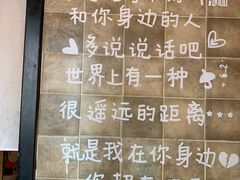 和你身边的人
多说说话吧
世界上有一种
很遥远的距离
就是我在你身边
你